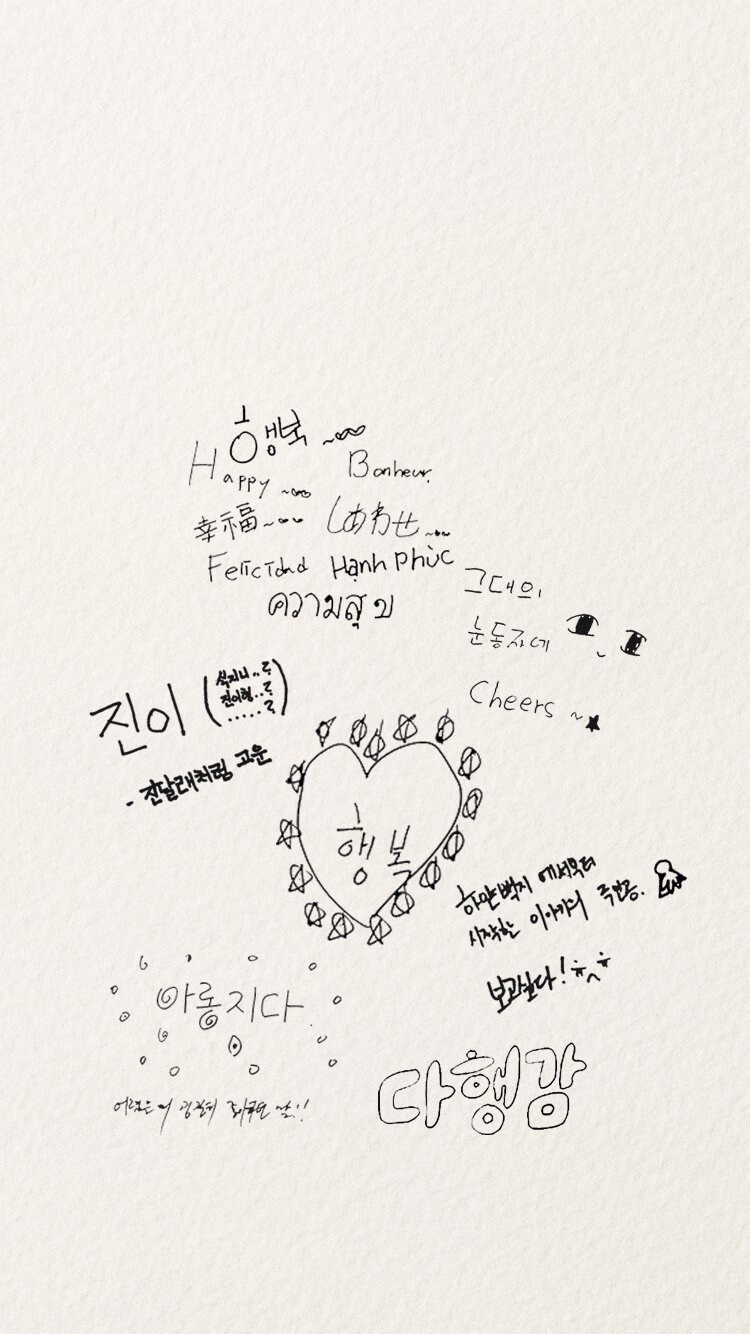 행복
Happy
Bonheur
幸福
しあわせ
Felicidad
Hạnh Phúc
ความสุข
그대의
눈동자에
Cheers
진이 (석지니..?
진이형..?
.....?)
- 진달래처럼 고운
행복
하얀 백지에서부터
시작한 이야기의 주인공.
보고싶다!
아롱지다
다행감